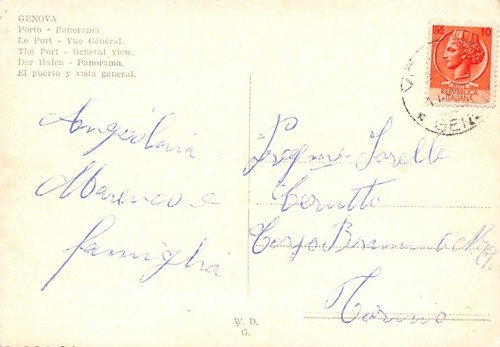 GENOVA
Porto - Panorama
Le Port - Vue Général.
The Port - General view.
Der Hafen - Panorama.
El puerto y vista general.
LIRE 10
REPUBBLICA
ITALIANA
Angiolina
Marenco e
famiglia
Pregme Sorelle
Cerutti
Corso Bramante
Torino
W. D.
G.